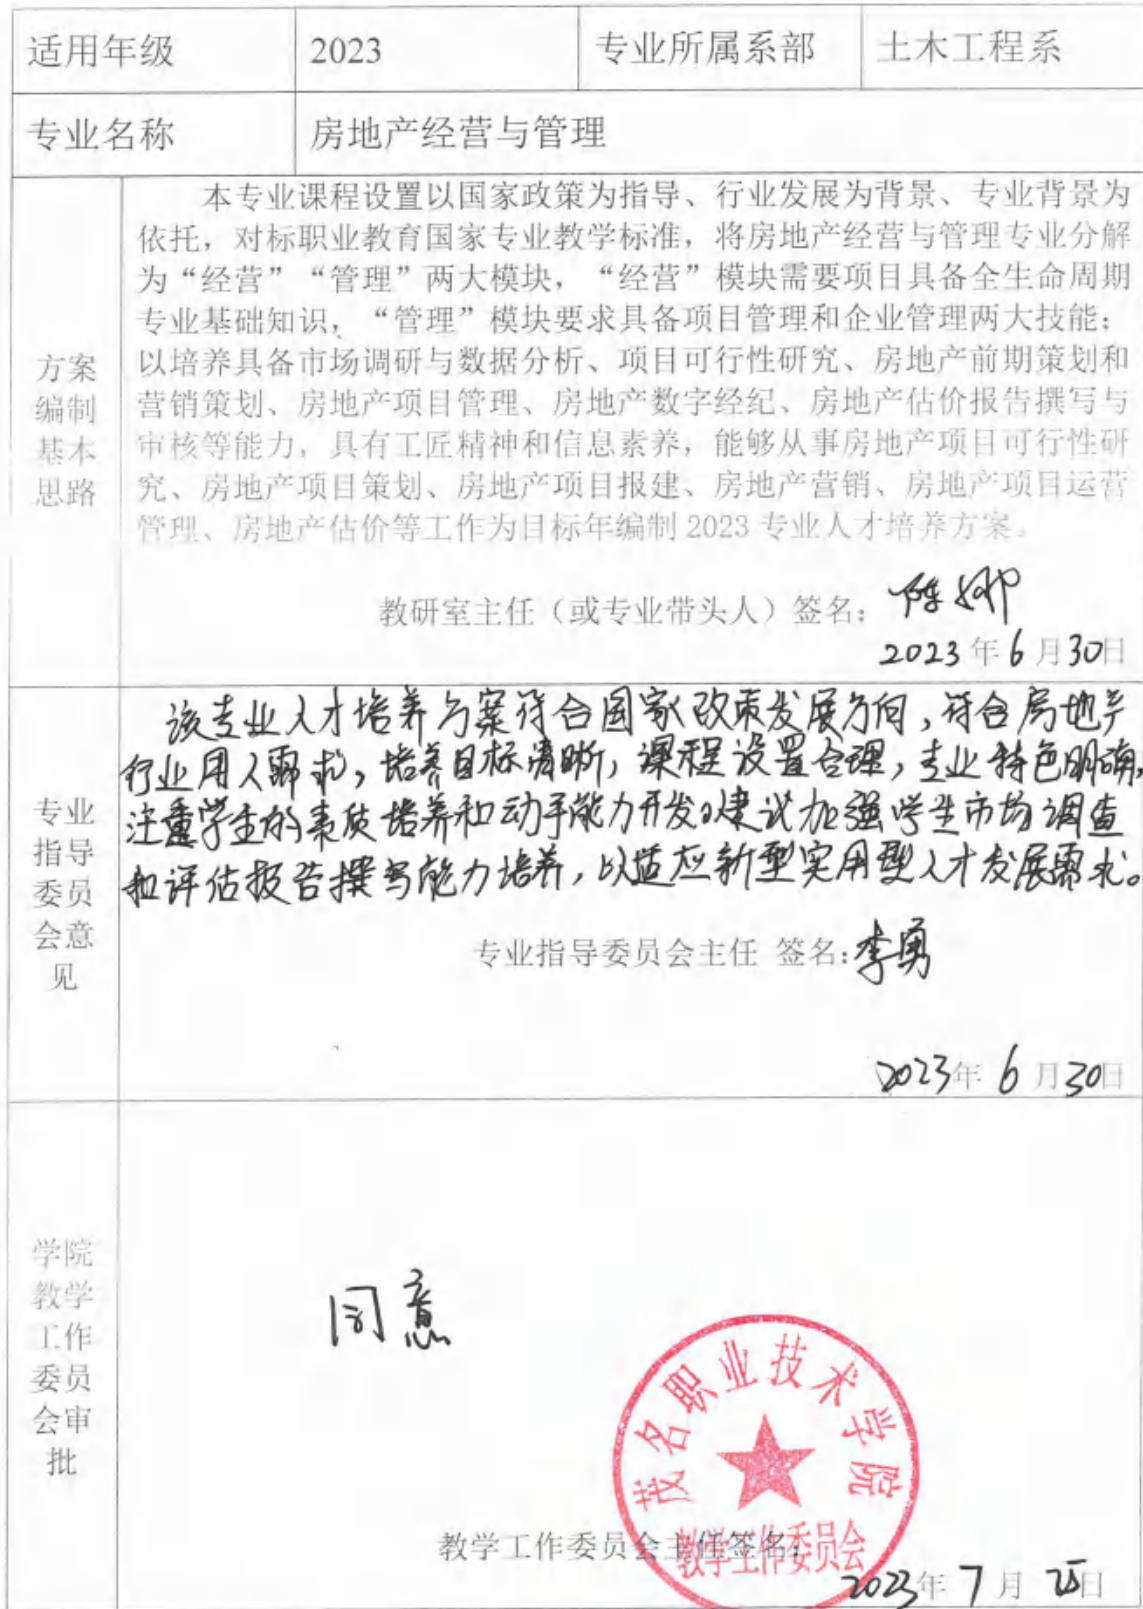 适用年级 2023 专业所属系部 土木工程系
专业名称 房地产经营与管理
方案
编制
基本
思路
本专业课程设置以国家政策为指导、行业发展为背景、专业背景为
依托，对标职业教育国家专业教学标准，将房地产经营与管理专业分解
为“经营”“管理”两大模块，“经营”模块需要项目具备全生命周期
专业基础知识，“管理”模块要求具备项目管理和企业管理两大技能；
以培养具备市场调研与数据分析、项目可行性研究、房地产前期策划和
营销策划、房地产项目管理、房地产数字经纪、房地产估价报告撰写与
审核等能力，具有工匠精神和信息素养，能够从事房地产项目可行性研
究、房地产项目策划、房地产项目报建、房地产营销、房地产项目运营
管理、房地产估价等工作为目标年编制 2023 专业人才培养方案。
教研室主任（或专业带头人）签名：陈娜
2023 年 6 月 30 日
专业
指导
委员
会意
见
该专业人才培养方案符合国家政策发展方向，符合房地产
行业用人需求，培养目标清晰，课程设置合理，专业特色明确，
注重学生的素质培养和动手能力开发。建议加强学生市场调查
和评估报告撰写能力培养，以适应新型实用型人才发展需求。
专业指导委员会主任 签名：李勇
2023年 6 月 30日
学院
教学
工作
委员
会审
批
同意
茂名职业技术学院
教学工作委员会
教学工作委员会主任签名：
2023年 7 月 25日